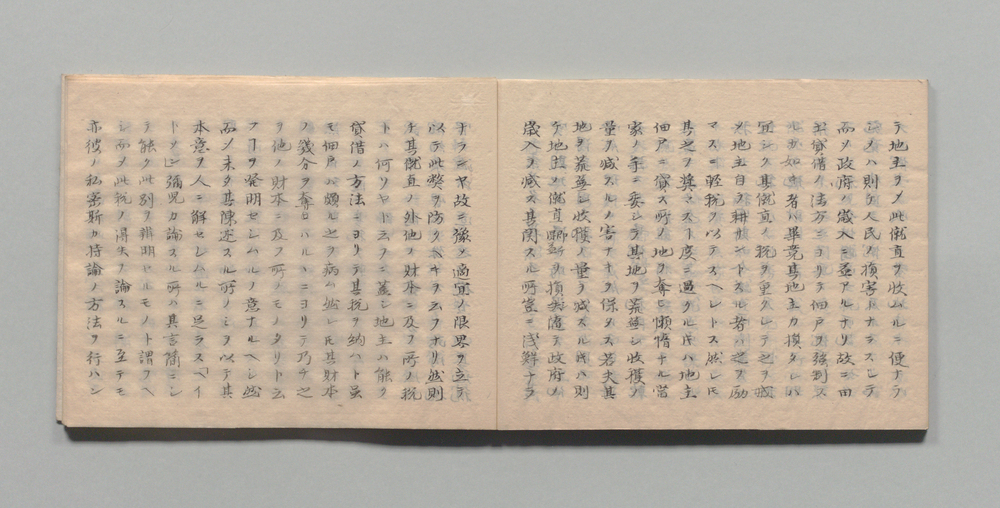 テ地主ヲ〆此僦直ヲ收ムルニ便ナラ
シメハ則チ人民ノ損害トナラスシテ
而〆政府ノ歳入ニ益アルナリ故ニ田
土貸借ノ法方ニヨリテ佃戸ヲ強剥ス
ル如キ者ハ畢竟其地主カ損タレハ
宜シク其僦直ノ税ヲ重クシテ之ヲ威
シ地主自ラ耕サントスル者ハ之ヲ励
マスニ軽税ヲ以テスヘシトス然レ𪜈
其之ヲ奨ムル丁度ニ過クル𪜈ハ地主
佃戸ニ貸ス所ノ地ヲ奪ヒ懶惰ナル富
家ノ手ニ委シテ其地ヲ荒蕪シ收獲ノ
量ヲ減スルノ害ナキヲ保タス若夫其
地ヲ荒蕪シ收獲ノ量ヲ減スル𪜈ハ則
チ地主ノ僦直ニ損 テ政府ノ
歳入ヲ減ス其関スル所豈ニ浅鮮ナラ
ナランヤ故ニ豫メ適宜ノ限界ヲ立テ
以テ此弊ヲ防クヘキヲ云フナリ然則
チ其僦直ノ外他ノ財本ニ及フ所ノ税
トハ何リヤト云フニ蓋シ地主ハ能ク
貸借ノ方法ニヨリテ其税ヲ納ハト虽
モ佃戸ハ頗ル之ヲ病ム然レ𪜈其財本
ノ幾分ヲ奪ヒハルルニヨリテ乃チ之
ヲ他ノ財本ニ及フ所ノモノタリト云
フヿヲ発明セシムルノ意ナルヘシ然
而〆未タ其陳述スル所ノミヲ以テ其
本意ヲ人ニ解セシムルニ足ラスヘイ
トン 彌児カ論スル所ハ其言簡ニシ
テ能ク此別ヲ辨明セルモノト謂フヘ
シ而〆此税ノ得失ヲ論スルニ至テモ
亦彼ノ私案斯カ持論ノ方法ヲ行ハン